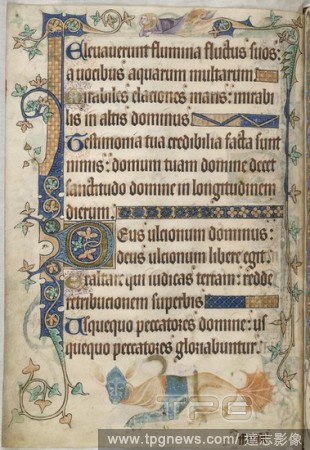 Eleuauerunt flumina fluctus suos:
a uocibus aquarum multarum.
Mirabiles elaciones maris: mirabi
lis in altis dominus
Testimonia tua credibilia facta sunt
nimis: domum tuam domine decet
sanctitudo domine in longitudinem
dierum.
Deus ulcionum dominus:
deus ulcionum libere egit.
Exaltare qui iudicas terram: redde
retribucionem superbis
Usquequo peccatores domine: us
quequo peccatores gloriabuntur.
TPG
www.tpgnews.com/達志影像